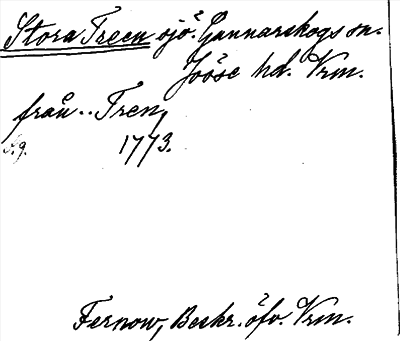 Stora Treen sjö. Gunnarskogs sn.
Jösse hd. Vrm.
från.. Tren,
1773.
Fernow, Beskr. öfv. Vrm.